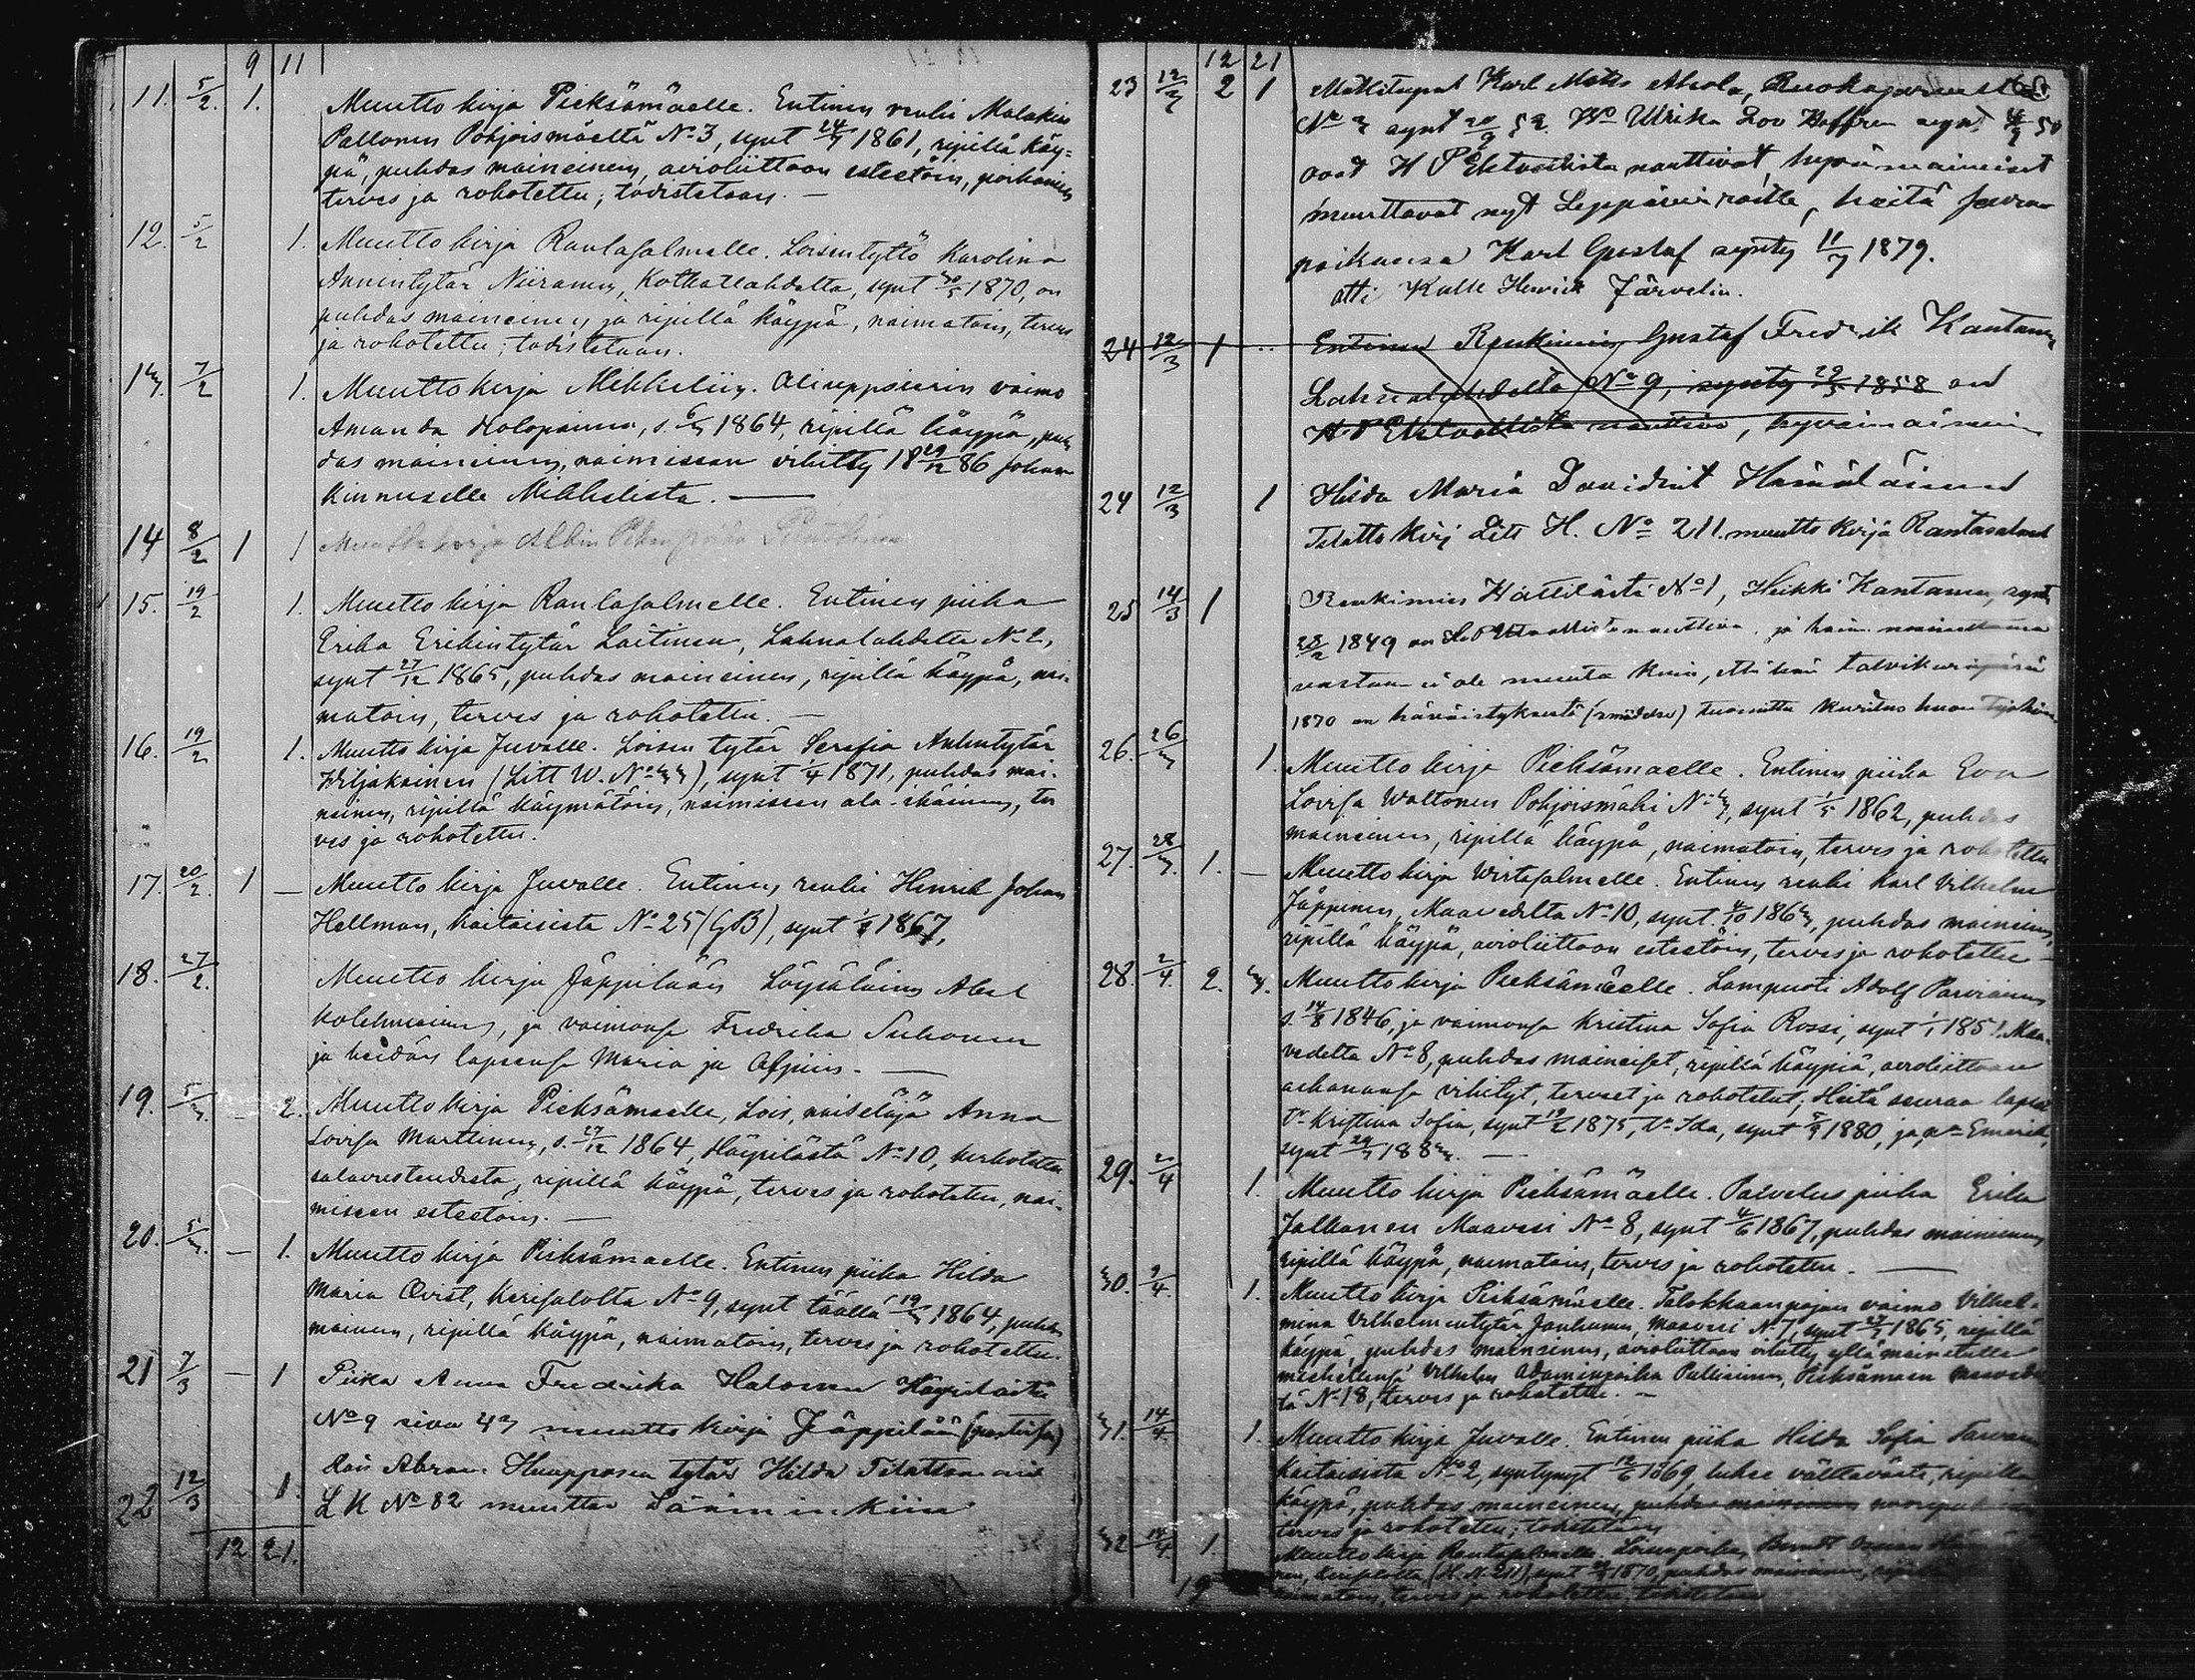 9 11
11. 5/2. 1. Muutto kirja Pieksämäelle. Entinen renki Malakias
Pallonen Pohjoismäeltä No 3, synt 24/7 1861, ripillä käy=
pä, puhdas maineinen, avioliittoon esteetöin, poikanen
terves ja rokotettu; todistetaan. —
12. 5/2 1. Muutto kirja Rantasalmelle. Loisentyttö Karolina
Annintytär Niiranen, Kotkatlahdelta, synt 30/5 1870, on
puhdas maineinen ja ripillä käypä, naimatoin, terves
ja rokotettu; todistetaan.
13. 7/2 1. Muutto kirja Mikkeliin. Aliuppsierin vaimo
Amanda Holopainen, s. 6/3 1864, ripillä käypä, puh
das maineinen, naimiseen vihitty 18 29/12 86 Johan
Kinnuselle Mikkelistä. —
14 8/2 1 1 Muutto kirja Albin
15. 19/2 1. Muutto kirja Rantasalmelle. Entinen piika
Erika Erikintytär Laitinen, Lahnalahdelta No 2,
synt 27/12 1865, puhdas maineinen, ripillä käypä, nai-
matoin, terves ja rokotettu. —
16. 19/2 1. Muutto kirja Juvalle. Loisen tytär Serafia Antintytär
Hiljakainen (Litt W. No 33), synt 1/4 1871, puhdas mai-
neinen, ripillä käymätöin, naimiseen ala-ikäinen, ter
ves ja rokotettu.
17. 20/2. 1 — Muutto kirja Juvalle. Entinen renki Henrik Johan
Hellman, Kaitaisista No 25 (GB), synt 1867,
18. 27/2. Muutto kirja Jäppilään Löysäläinen Abel
Kolehmainen, ja vaimonsa Fredrika Suhonen
ja heidän lapsensa Maria ja —
19. 5/3. — 2. Muutto kirja Pieksämaelle, Lois, naiseläjä Anna
Lovisa Marttinen, s. 27/12 1864, Häyrilästä No 10,
salavuoteudesta, ripillä käypä, terves ja rokotettu, nai-
miseen esteetöin. —
20. 5/3. — 1. Muutto kirja Pieksämaelle. Entinen piika Hilda
Maria Qvist, Kerisalolta No 9, synt täällä 19/3 1864, puhdas
mainen, ripillä käypä, naimatoin, terves ja rokotettu.
21 7/3 — 1 Piika Anna Fredrika Halonen Häyrilästä
No 9 sivu 43 muutto kirja Jäppilään
Lois Abram Huupposen tytär Hilda
22 12/3 1. L K No 82 muuttaa
12 21.
12 21
23 12/3 2 1 Mäkitupal Karl Mats Ahola,
No 3 synt 20/9 52. Wo Ulrika Lov synt 50
ovat H P Ehtoollista nauttivat, hyvä maineiset
muuttavat nyt Leppävirroille, heitä seuraa
poikansa Karl Gustaf synty 11/7 1879.
otti Kalle Henrik Järvelin.
24 12/3 1 Entinen Renkimies Gustaf Fredrik Kantanen
Lahnalahdelta No 9, synty 29/5 1858 on
H P Ehtoollista nauttiva, hyvämaineinen
24 12/3 1 Hilda Maria Davidint Hämäläinen
Lits H. No 211. muutto kirja Rantasalmel
25 14/3 1 Renkimies Hällilästä No 1, Heikki Kantanen, synt
28/2 1849 on nauttiva, ja hain
vastaan ei ole muuta kuin, että hän talvikäräjissä
1870 on häväistyksestä (smädelse) tuomittu
26. 26/3 1. Muutto kirja Pieksämaelle. Entinen piika Eva
Lovisa Waltonen Pohjoismäki No 3, synt 1/5 1862, puhdas
maineinen, ripillä käypä, naimatoin, terves ja rokotettu
27. 28/3. 1. — Muutto kirja Wirtasalmelle. Entinen renki Karl Vilhelm
Jäppinen, Maavedelta No 10, synt. 4/10 1863, puhdas maineinen,
ripillä käypä, avioliittoon esteetöin, terves ja rokotettu —
28. 2/4. 2. 3. Muutto kirja Pieksämäelle. Lampuoti Adolf Parviainen
s. 14/8 1846, ja vaimonsa Kristina Sofia Rossi, synt 1/1 1851 Maa-
vedelta No 8, puhdas maineiset, ripillä käypiä, avioliittoon
aikananse vihityt, terveet ja rokotetut; Heitä seuraa lapset
Tr Kristina Sofia, synt 19/2 1875, Tr Ida, synt 5/9 1880, ja Emerik,
synt 24/3 1883. —
29. 2/4 1. Muutto kirja Pieksämäelle. Palvelus piika Erika
Jalkanen Maavesi No 8, synt 4/6 1867, puhdas maineinen
ripillä käypä, naimatoin, terves ja rokotettu. —
30. 9/4. 1. Muutto kirja Pieksämäelle. Talokkaanpojan vaimo Vilhel-
mina Vilhelmintytär Janhunen, Maavesi No 7, synt 27/3 1865, ripillä
käypä, puhdas maineinen, avioliittoon vihitty yllä mainetulle
miehellensä Vilhelm Adaminpoika Pulliainen, Pieksämäen
tä No 18, terves ja rokotettu. —
31. 14/4. 1. Muutto kirja Juvalle. Entinen piika Hilda Sofia
Kaitaisista No 2, syntynyt 12/6 1869, lukee välttävästi, ripillä
käypä, puhdas maineinen, puhdas maineinen
terves ja rokotettu; todistetaan
32 14/4. 1. Muutto kirja Rantasalmelle. Loisenpoika, Berndt
(H. N. 211), synt 1870, puhdas maineinen, ripillä
naimatoin, terves ja rokotettu, todistetaan
19